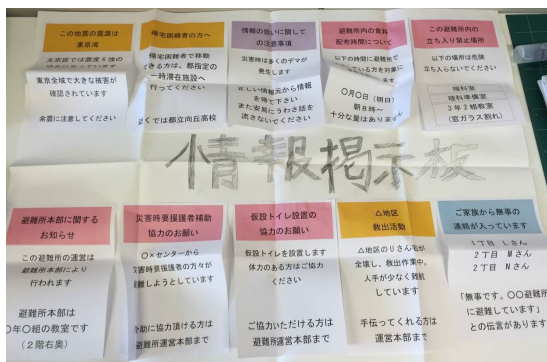 この地震の震源は
東京湾
北区では震度6強の
東京全域で大きな被害が
確認されています
余震に注意してください
帰宅困難者の方へ
帰宅困難者で移動
できる方は、都指定の
一時滞在施設へ
行ってください
近くでは都立向丘高校
情報の扱いに関して
の注意事項
災害時は多くのデマが
発生します
正しい情報元から情報
を得て下さい
また安易にうわさ話を
流さないでください
避難所内の食料
配布時間について
以下の時間に避難所で
いている方を対象に
〇月〇日(明日)
朝8時~
十分な量はありません
この避難所内の
立ち入り禁止場所
以下の場所は危険
立ち入らないでください
理科室
理科準備室
3年2組教室
(窓ガラス割れ)
情報掲示板
避難所本部に関する
お知らせ
この避難所の運営は
避難所本部により
行われます
避難所本部は
〇年〇組の教室です
(2階右奥)
災害時要援護者補助
協力のお願い
〇×センターから
災害時要援護者の方々が
避難しようとしています
介助に協力頂ける方は
避難所運営本部まで
仮設トイレ設置の
協力のお願い
仮設トイレを設置します
体力のある方はご協力
ください
ご協力いただける方は
避難所運営本部まで
△地区
救出活動
△地区のリさん宅が
全壊し、救出作業中。
人手が少なく難航
しています
手伝ってくれる方は
運営本部まで
ご家族から無事の
連絡が入っています
1丁目 Lさん
2丁目 Mさん
2丁目 Nさん
「無事です。〇〇避難所
に避難しています」
との伝言があります